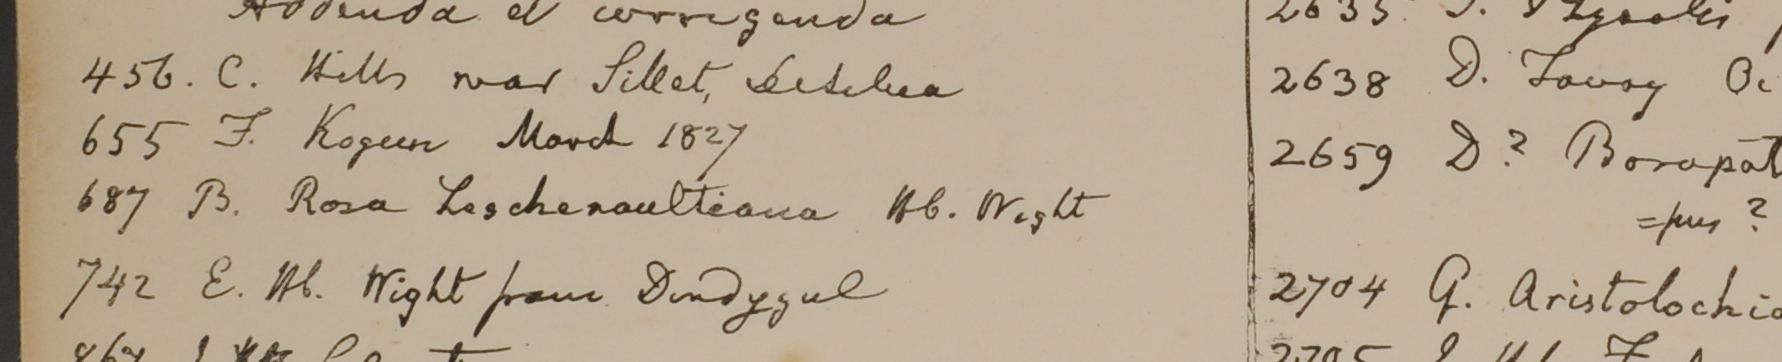 Addenda et corrigenda
456. C. Hills near Sillet, De Silva
655 F. Kogeen March 1827
687 B. Rosa Leschenaultiana Hb. Wight
742 E. Hb. Wight from Dindygul
2635
2638 D. Tavoy
2659 D? Borapat
= pus ?
2704 G. Aristolochia
2705